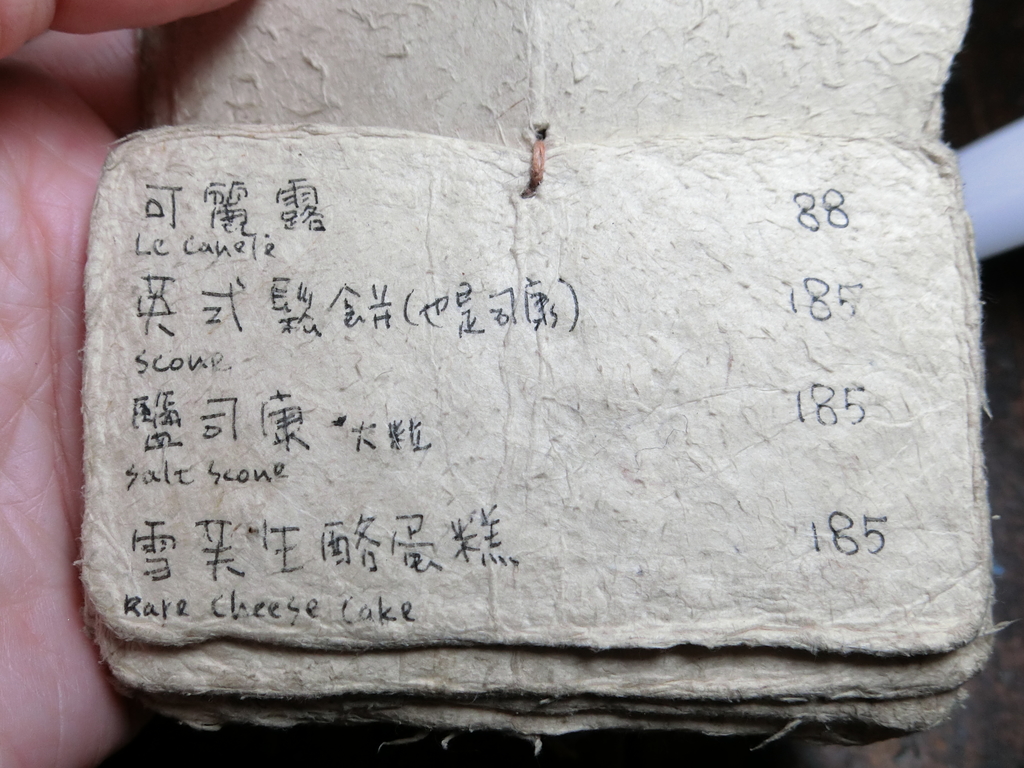 可麗露 88
Le Canelé
英式鬆餅(也是司康) 185
scone
鹽司康 大粒 185
salt scone
雪芙生酪蛋糕 185
Rare Cheese Cake